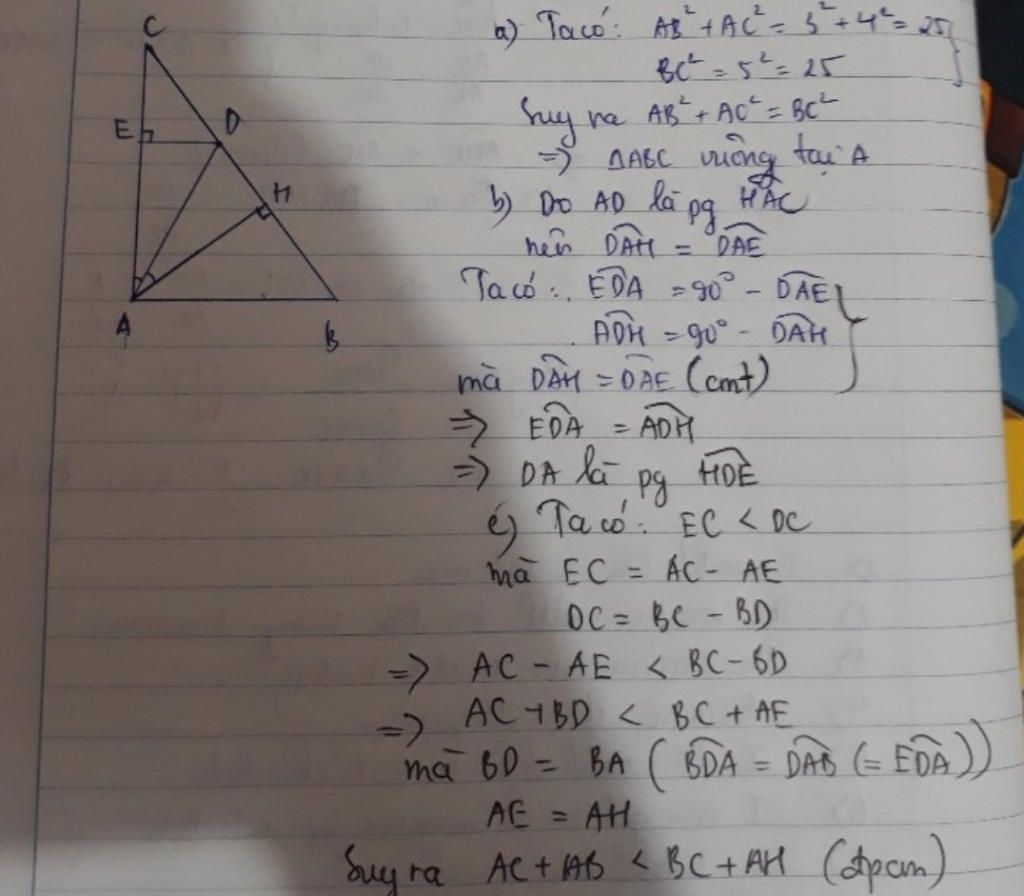 C
E
D
H
A
B
a) Ta có: AB² + AC² = 3² + 4² = 25
BC² = 5² = 25
Suy ra AB² + AC² = BC²
=> ΔABC vuông tại A
b) Do AD là pg HÂC
nên DÂH = DÂE
Ta có: ED̂A = 90° - DÂE
AD̂H = 90° - DÂH
mà DÂH = DÂE (cmt)
=> ED̂A = AD̂H
=> DA là pg HD̂E
c) Ta có: EC < DC
mà EC = AC - AE
DC = BC - BD
=> AC - AE < BC - BD
=> AC + BD < BC + AE
mà BD = BA (BD̂A = DÂB (= ED̂A))
AE = AH
Suy ra AC + AB < BC + AH (đpcm)